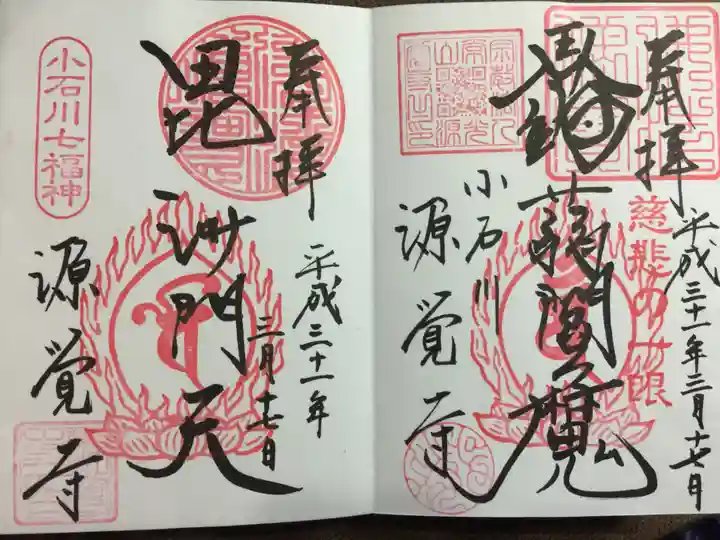 奉拝
平成三十一年三月十七日
慈悲の一眼
閻魔
小石川
源覚寺
奉拝
平成三十一年
三月十七日
毘沙門天
小石川七福神
源覚寺